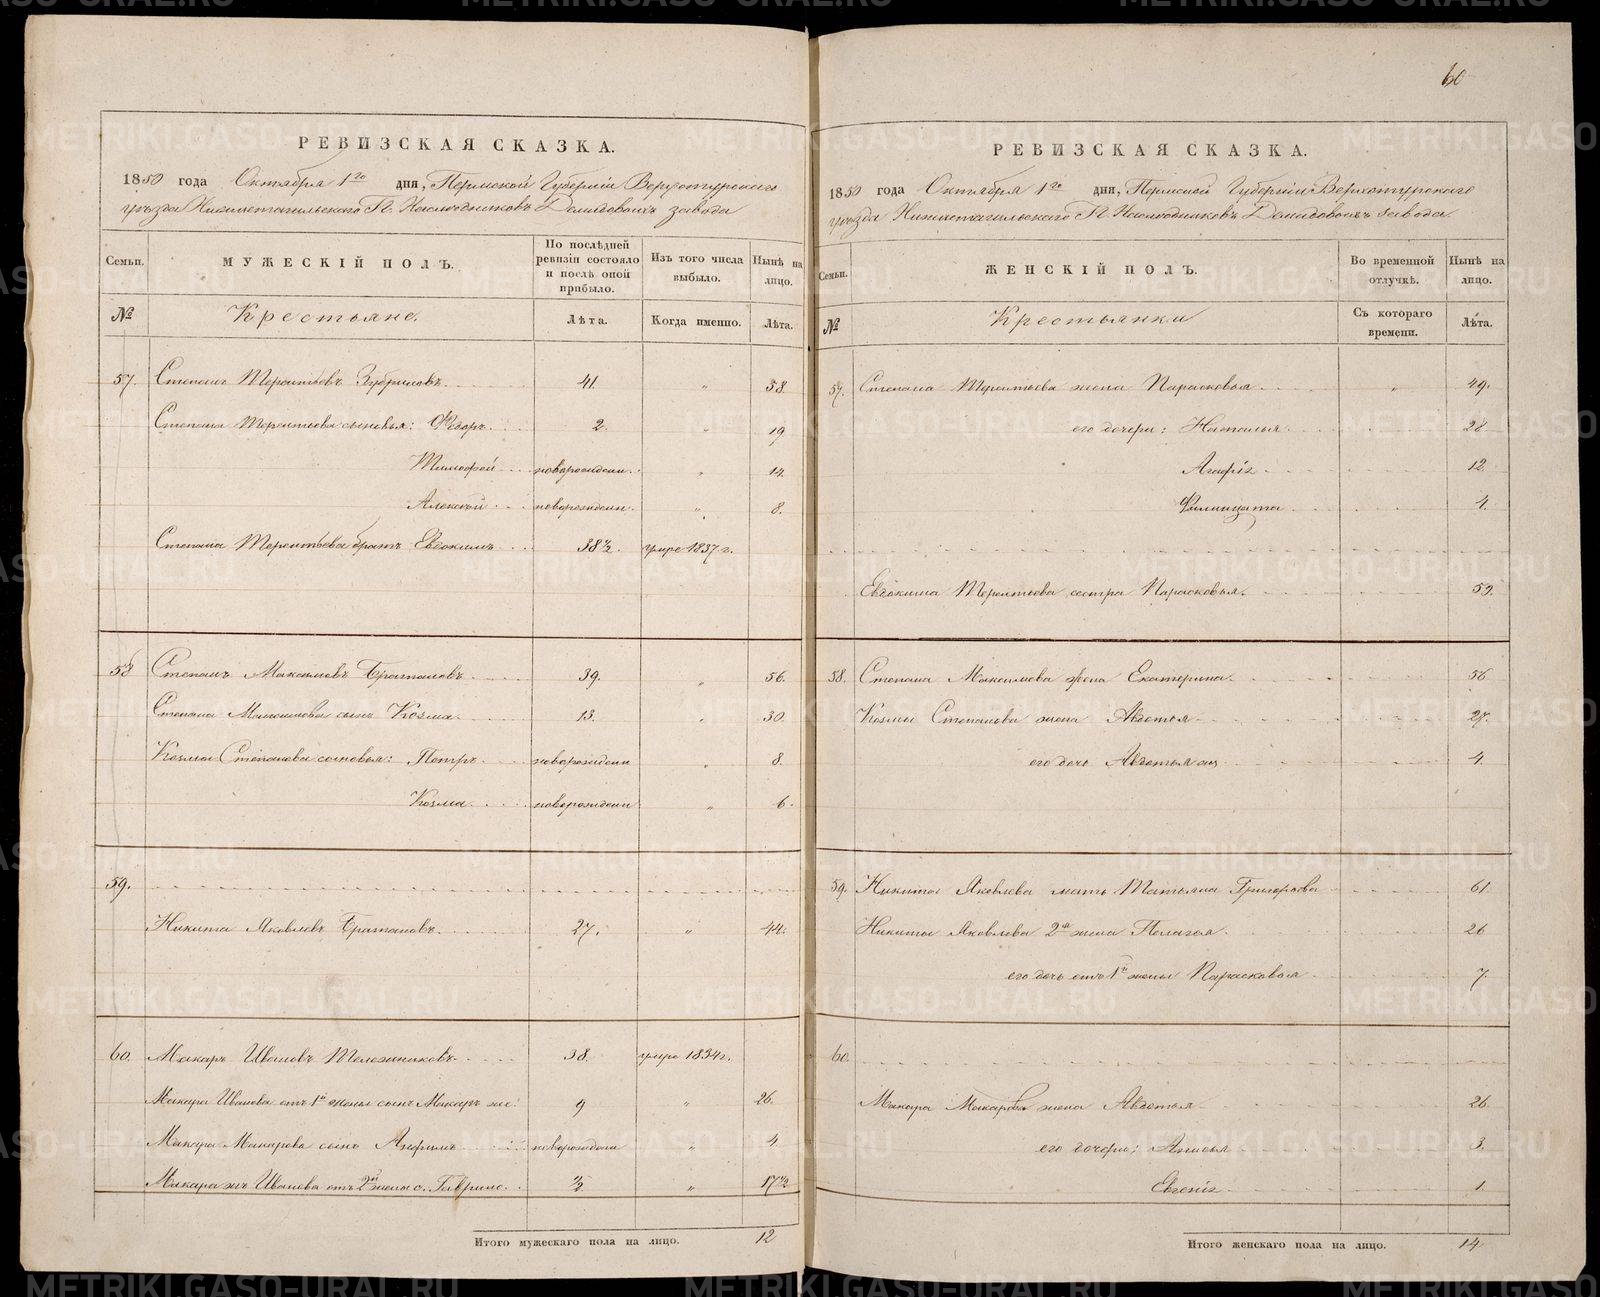 60
РЕВИЗСКАЯ СКАЗКА.
1850 года Октября 1го дня, Пермской Губерніи Верхотурскаго
уѣзда Нижнетагильскаго Г. Наслѣдниковъ Демидовыхъ завода
Семьи. МУЖЕСКІЙ ПОЛЪ. По послѣдней ревизіи состояло и послѣ оной прибыло. Изъ того числа выбыло. Нынѣ на лицо.
№ Крестьяне. Лѣта. Когда именно. Лѣта.
57. Степанъ Терентьевъ 41. " 58
Степана Терентьева сыновья: Ѳедоръ 2. " 19
Тимофей новорожден. " 14
Алексѣй новорожден. " 8.
Степана Терентьева братъ Евдокимъ 38½. умре 1837 г.
58 Степанъ Максимовъ Братановъ 39. " 56.
Степана Максимова сынъ Козма 13. " 30.
Козмы Степанова сыновья: Петръ новорожден " 8.
Козма новорожден " 6.
59.
Никита Яковлевъ Братановъ. 27. " 44.
60. Макаръ Ивановъ Телетниковъ 38. умре 1834 г.
Макара Иванова отъ 1й жены сынъ Макаръ же 9 " 26.
Макара Макарова сынъ новорожден " 4
Макара же Иванова отъ 2й жены с. Гаврило ½ " 17½
Итого мужескаго пола на лицо. 12
РЕВИЗСКАЯ СКАЗКА.
1850 года Октября 1го дня, Пермской Губерніи Верхотурскаго
уѣзда Нижнетагильскаго Г. Наслѣдниковъ Демидовыхъ завода
Семьи. ЖЕНСКІЙ ПОЛЪ. Во временной отлучкѣ. Нынѣ на лицо.
№ Крестьянки Съ котораго времени. Лѣта.
57. Степана Терентьева жена Парасковья " 49.
его дочери: Наталья 28
Агафія 12.
Филицата 4.
Евдокима Терентьева сестра Парасковья. 59.
58. Степана Максимова жена Екатерина. 56
Козмы Степанова жена Авдотья 27.
его дочь Авдотья 4.
59. Никиты Яковлева мать Татьяна Григорьева 61
Никиты Яковлева 2я жена Пелагея. 26
его дочь отъ 1й жены Парасковья 7.
60.
Макара Макарова жена Авдотья 26
его дочери: Анисья 3.
Евгенія 1.
Итого женскаго пола на лицо. 14
METRIKI.GASO-URAL.RU